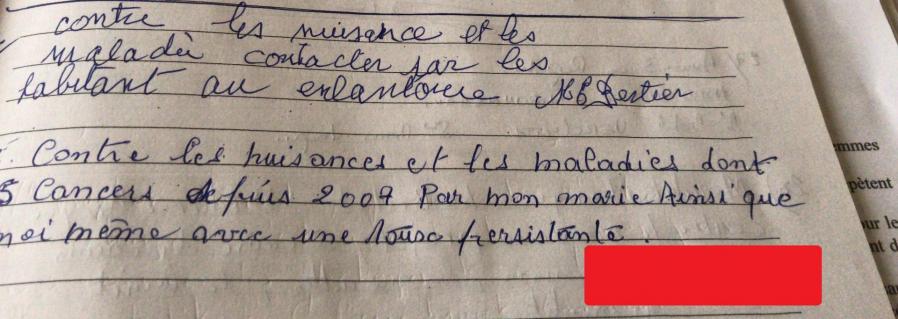 contre les nuisance et les
maladie contacter par les
habitant au
Contre les nuisances et les maladies dont
5 Cancers depuis 2007 Par mon marie Ainsi que
moi même avec une Touse persistante.
mmes
pètent
ur le
nt d